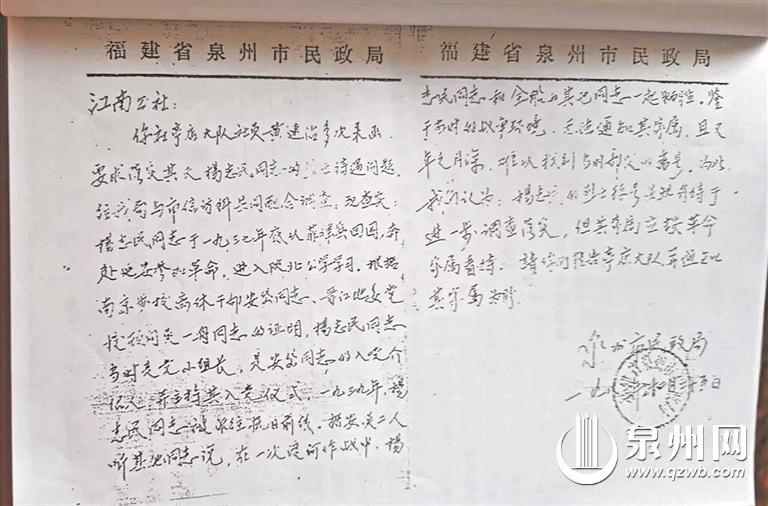 福建省泉州市民政局
江南公社：
你社亭店大队社员黄速治多次来函，
要求落实其夫杨志民同志的烈士待遇问题，
经我局与市信访科共同配合调查，现查实：
杨志民同志于一九三七年底从菲律宾回国，奔
赴延安参加革命，进入陕北公学学习。根据
南京 校离休干部安岱同志、晋江地委党
校顾问吴一舟同志的证明，杨志民同志
当时是党小组长，是安岱同志的入党介
绍人，并主持其入党仪式，一九三九年，杨
志民同志被派往抗日前线。据安、吴二人
听其他同志说，在一次渡河作战中，杨
福建省泉州市民政局
志民同志和全船的其他同志一起牺牲。鉴
于当时的战争环境，无法通知其家属，且又
年久月深，难以找到当时部队的番号，为此，
我们认为：杨志民的烈士称号 有待于
进一步调查落实，但其家属应按革命
家属看待。请你们转告亭店大队并通知
其家属为盼
泉州市民政局
一九八 年 月 五日
泉州网
www.qzwb.com